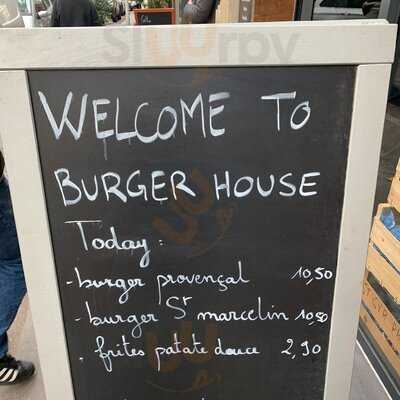 Sluurpy
WELCOME TO
BURGER HOUSE
Today :
- burger provençal 10,50
- burger St marcelin 10,50
. frites patate douce 2,90